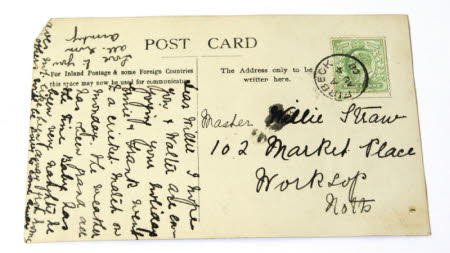 POST CARD
For Inland Postage & some Foreign Countries
this space may now be used for communication
The Address only to be
written here.
FIRBECK
Dear Willie I hope
you & Walter are en-
joying your holiday
Frank went
to a cricket match on
Monday. The weather
has been grand all
the time Baby has
been very naughty he
Love to you
all. from
Aunty
Master Willie Straw
102 Market Place
Worksop
Notts